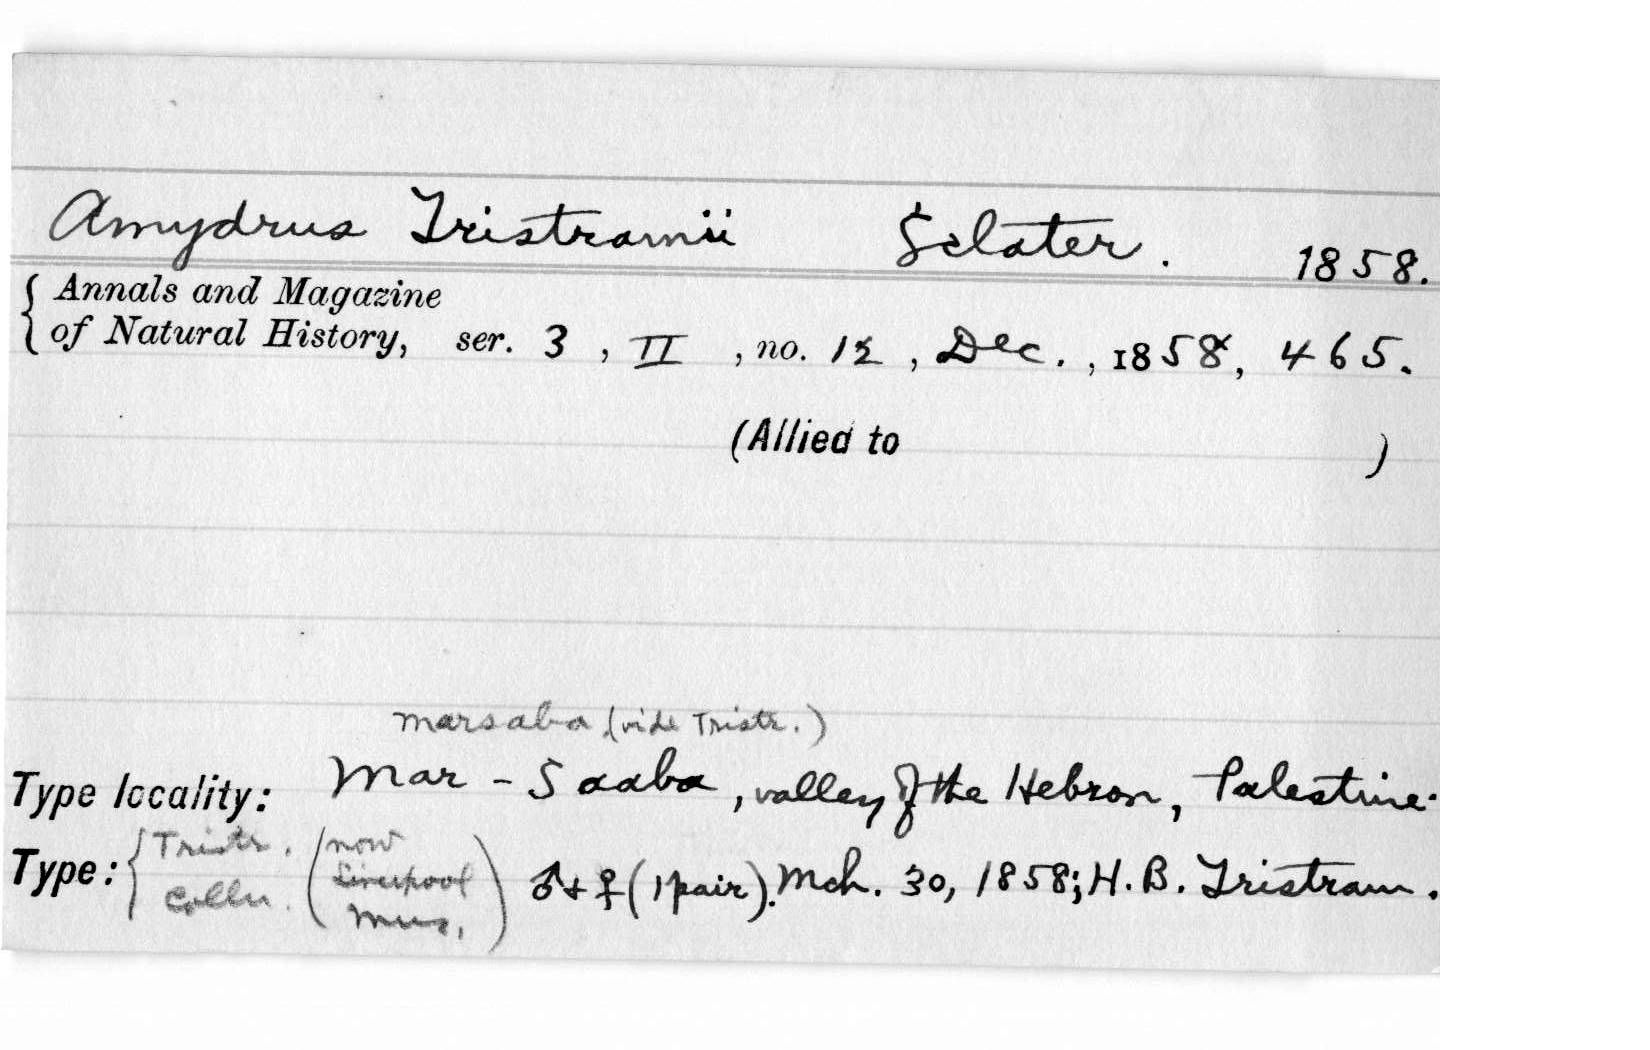 Amydrus Tristramii Sclater. 1858.
Annals and Magazine
of Natural History, ser. 3, II, no. 12, Dec., 1858, 465.
(Allied to )
marsaba (vide Tristr.)
Type locality: Mar-Saaba, valley of the Hebron, Palestine.
Type: { Tristr. Colln. (now Liverpool Mus.) ♂+♀ (1 pair). Mch. 30, 1858; H. B. Tristram.